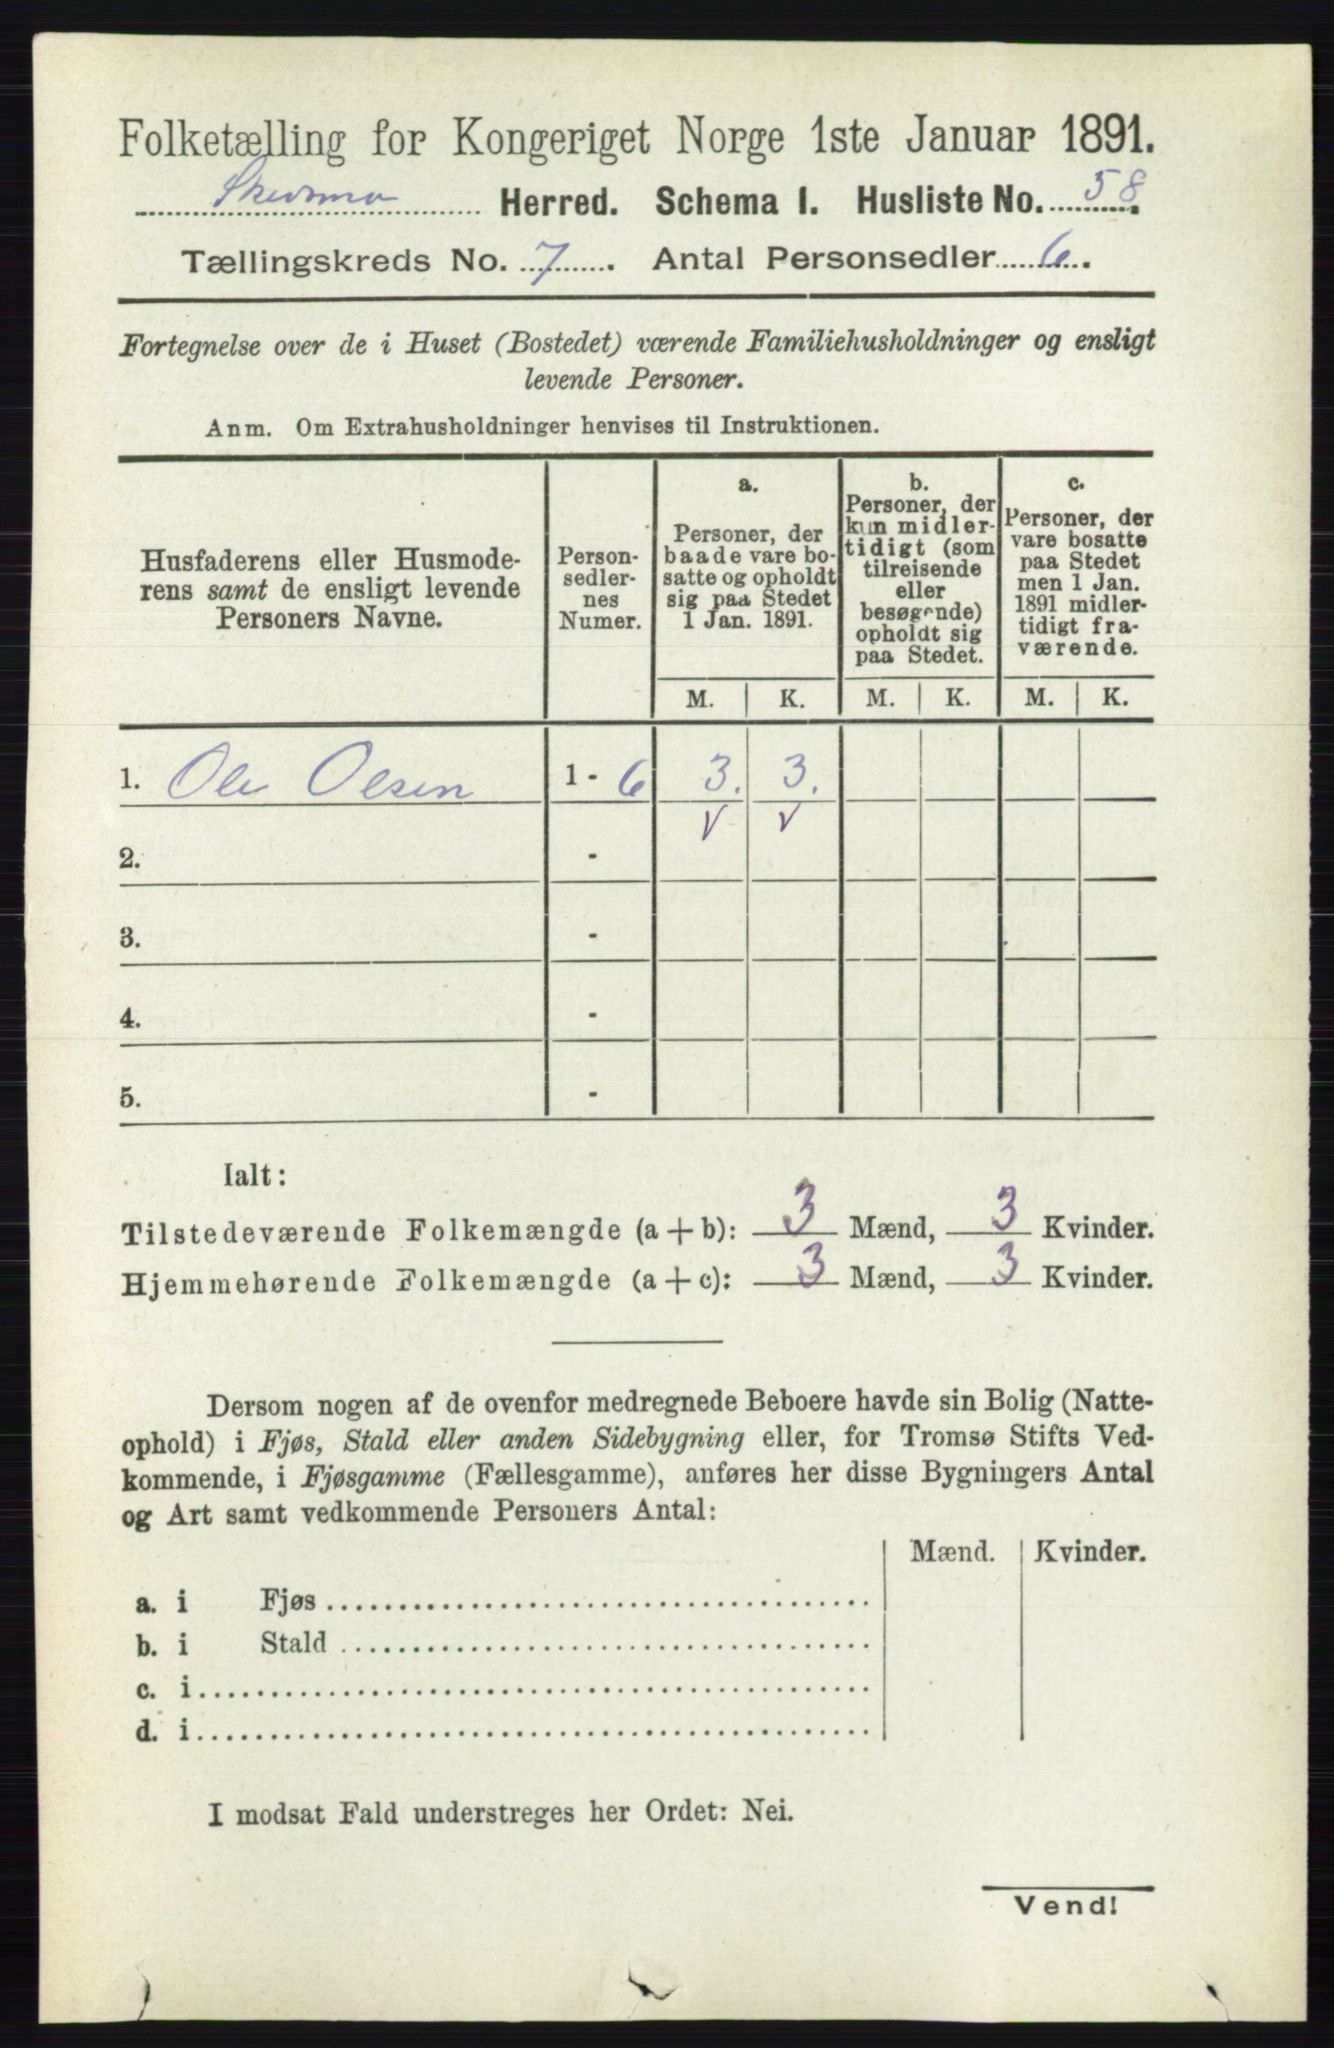 Folketælling for Kongeriget Norge 1ste Januar 1891.
Skedsmo Herred. Schema I. Husliste No. 58.
Tællingskreds No. 7. Antal Personsedler 6.
Fortegnelse over de i Huset (Bostedet) værende Familiehusholdninger og ensligt
levende Personer.
Anm. Om Extrahusholdninger henvises til Instruktionen.
Husfaderens eller Husmode-
rens samt de ensligt levende
Personers Navne.
Person-
sedler-
nes
Numer.
a.
Personer, der
baade vare bo-
satte og opholdt
sig paa Stedet
1 Jan. 1891.
b.
Personer, der
kun midler-
tidigt (som
tilreisende
eller
besøgende)
opholdt sig
paa Stedet.
c.
Personer, der
vare bosatte
paa Stedet
men 1 Jan.
1891 midler-
tidigt fra-
værende.
M. K. M. K. M. K.
1. Ole Olsen 1 - 6 3. 3.
v v
2. -
3. -
4. -
5. -
Ialt:
Tilstedeværende Folkemængde (a + b): 3 Mænd, 3 Kvinder.
Hjemmehørende Folkemængde (a + c): 3 Mænd, 3 Kvinder.
Dersom nogen af de ovenfor medregnede Beboere havde sin Bolig (Natte-
ophold) i Fjøs, Stald eller anden Sidebygning eller, for Tromsø Stifts Ved-
kommende, i Fjøsgamme (Fællesgamme), anføres her disse Bygningers Antal
og Art samt vedkommende Personers Antal:
Mænd. Kvinder.
a. i Fjøs
b. i Stald
c. i
d. i
I modsat Fald understreges her Ordet: Nei.
Vend!